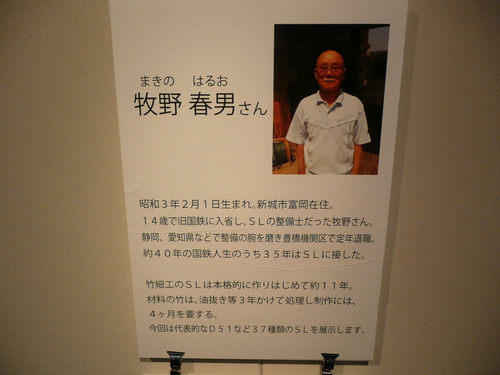 まきの はるお
牧野 春男さん
昭和３年２月１日生まれ。新城市富岡在住。
１４歳で旧国鉄に入省し、ＳＬの整備士だった牧野さん。
静岡、愛知県などで整備の腕を磨き豊橋機関区で定年退職。
約４０年の国鉄人生のうち３５年はＳＬに接した。
竹細工のＳＬは本格的に作りはじめて約１１年。
材料の竹は、油抜き等３年かけて処理し制作には、
４ヶ月を要する。
今回は代表的なＤ５１など３７種類のＳＬを展示します。